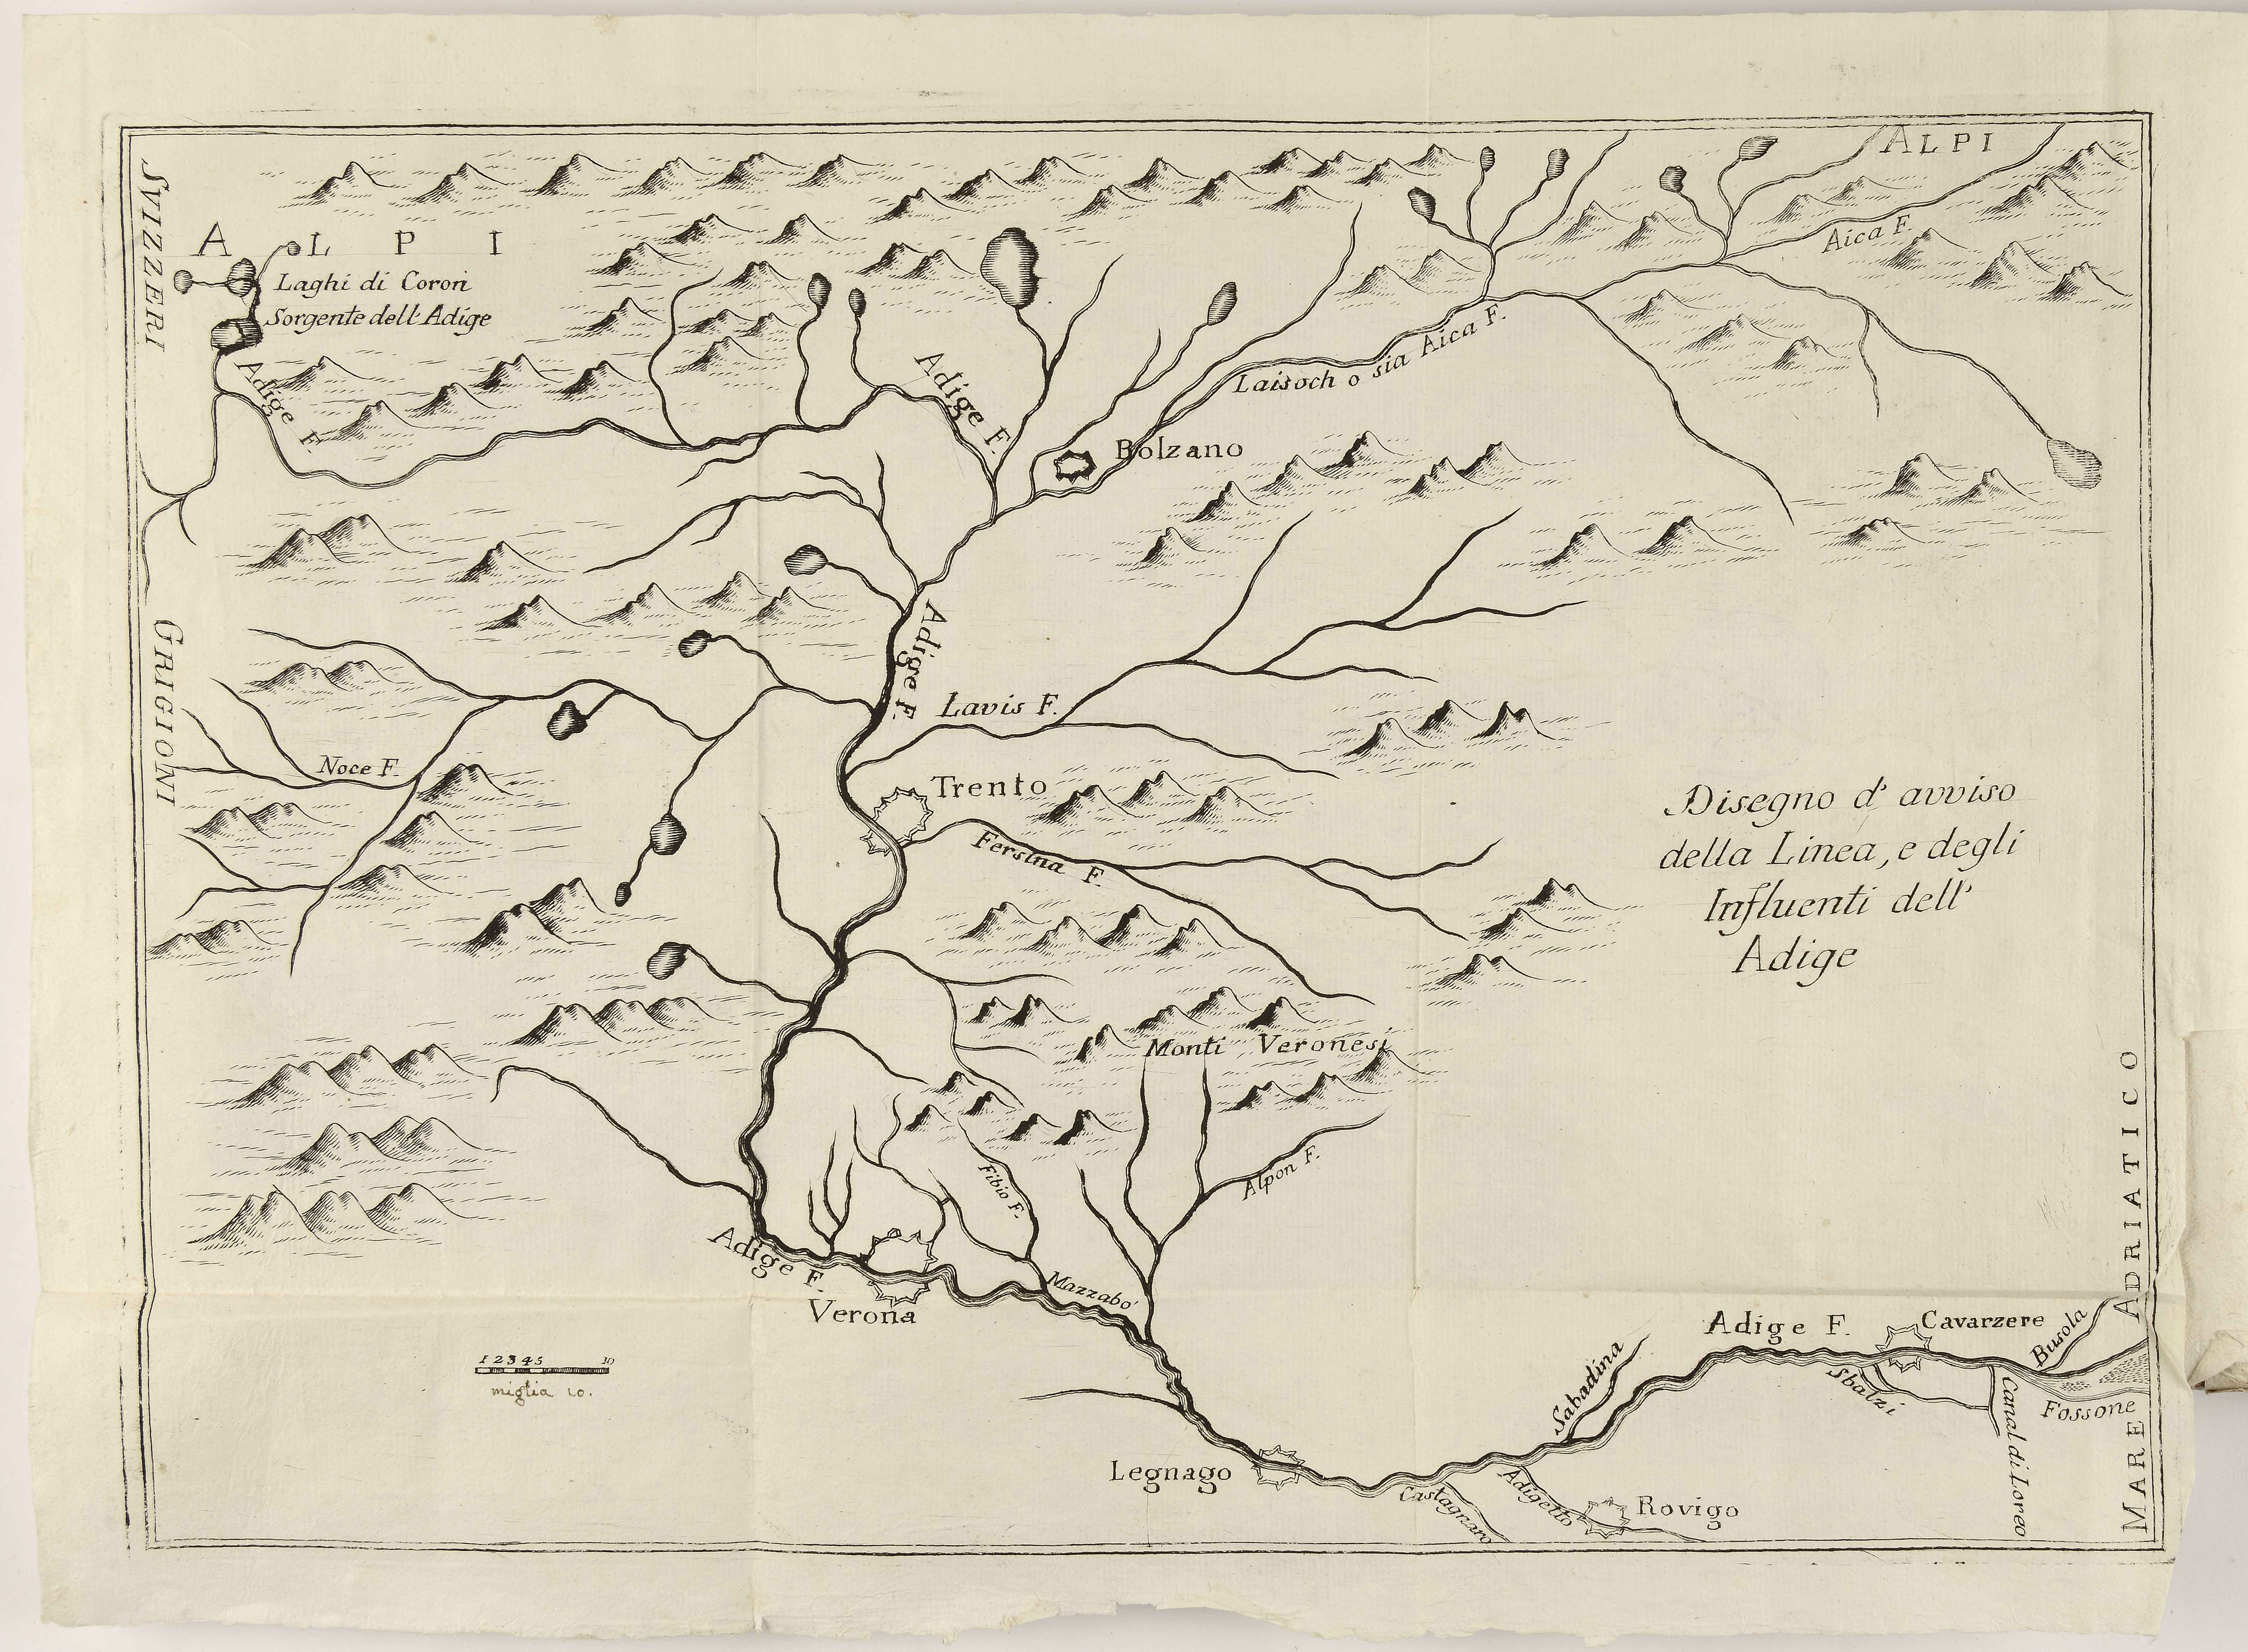 ALPI
SVIZZERI
A L P I
Laghi di Coron
Sorgente dell' Adige
Adige F.
Aica F.
Laisoch o sia Aica F.
Adige F.
Bolzano
Adige F.
GRIGIONI
Lavis F.
Noce F.
Trento
Fersina F.
Disegno d' avviso
della Linea, e degli
Influenti dell'
Adige
Monti Veronesi
Fibio F.
Alpon F.
Adige F.
Verona
Mazzabo'
1 2 3 4 5 10
miglia 10.
MARE ADRIATICO
Adige F.
Cavarzere
Busola
Sabadina
Sbalzi
Canal di Loreo
Fossone
Legnago
Castagnaro
Adigetto
Rovigo